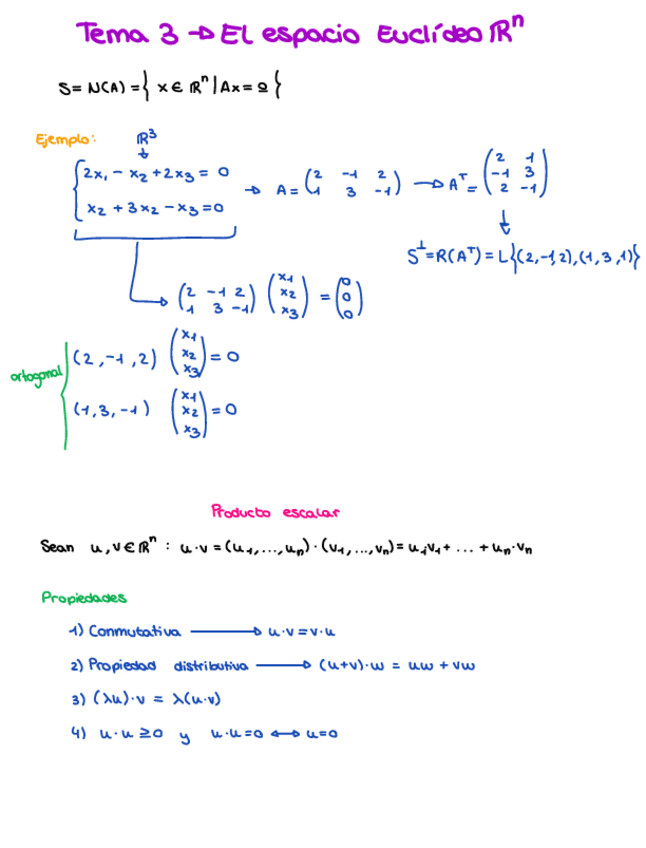 Tema 3 → El espacio Euclídeo ℝⁿ
S = N(A) = { x ∈ ℝⁿ | Ax = 0 }
Ejemplo: ℝ³
↓
{ 2x₁ - x₂ + 2x₃ = 0
x₂ + 3x₂ - x₃ = 0
→ A = (2 -1 2
1 3 -1) → Aᵀ = (2 1
-1 3
2 -1)
↓
S^⊥ = R(Aᵀ) = L{(2,-1,2), (1,3,1)}
→ (2 -1 2
1 3 -1) (x₁
x₂
x₃) = (0
0
0)
ortogonal
(2, -1, 2) (x₁
x₂
x₃) = 0
(1, 3, -1) (x₁
x₂
x₃) = 0
Producto escalar
Sean u, v ∈ ℝⁿ : u·v = (u₁, ..., uₙ) · (v₁, ..., vₙ) = u₁v₁ + ... + uₙ·vₙ
Propiedades
1) Conmutativa → u·v = v·u
2) Propiedad distributiva → (u+v)·w = uw + vw
3) (λu)·v = λ(u·v)
4) u·u ≥ 0 y u·u = 0 ↔ u = 0